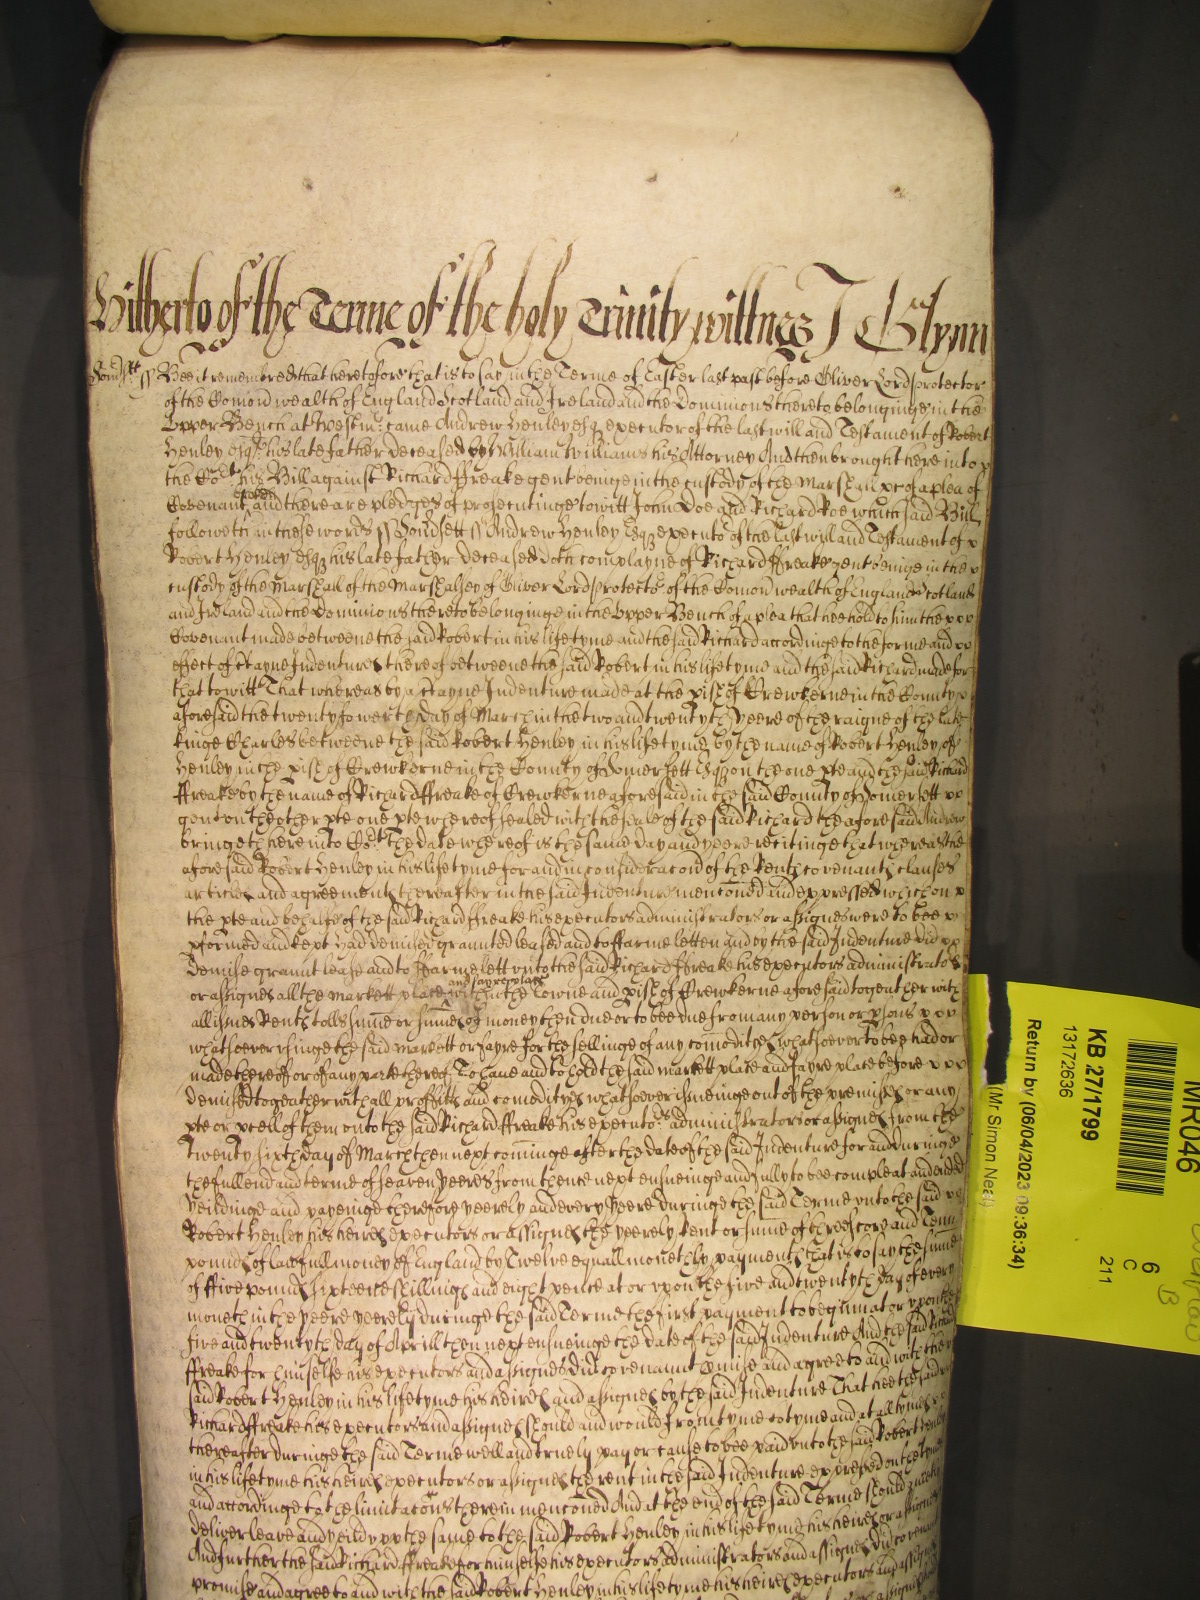 Hitherto of the Terme of the holy Trinity wittnes J Glynn
Somsett ss Bee it remembred that heretofore that is to say in the Terme of Easter last past before Oliver Lord protector
of the Comon wealth of England Scotland and Ireland and the Dominions thereto belonginge in the
Upper Bench at Westmr came Andrew Henley Esq executor of the last will and Testament of Robert
Henley Esqr his late father deceased by William Williams his Attorney And then brought here into
the Cort his Bill against Richard ffreake gent beinge in the custody of the Marshall &c of a plea of
Covenant broken and there are pledges of prosecutinge to witt John Doe and Richard Roe which said Bill
followeth in these words ss Somsett ss Andrew Henley Esq executor of the last will and Testament of
Robert Henley Esq his late father deceased doth complayne of Richard ffreake gent beinge in the
custody of the Marshall of the Marshalsey of Oliver Lord protector of the Comon wealth of England Scotland
and Ireland and the Dominions thereto belonginge in the Upper Bench of a plea that hee hold to him the
Covenant made betweene the said Robert in his life tyme and the said Richard accordinge to the forme and
effect of certayne Indentures thereof betweene the said Robert in his life tyme and the said Richard made for
that to witt That whereas by a certayne Indenture made at the pish of Crewkerne in the County
aforesaid the twenty fowerth day of March in the two and twentyth yeere of the raigne of the late
kinge Charles betweene the said Robert Henley in his life tyme by the name of Robert Henley of
Henley in the pish of Crewkerne in the County of Somersett Esq on the one pte and the said Richard
ffreake by the name of Richard ffreake of Crewkerne aforesaid in the said County of Somersett
gent on the other pte one pte whereof sealed with the seale of the said Richard the aforesaid Andrew
bringeth here into Cort The date whereof is the same day and yeere recitinge that whereas the
aforesaid Robert Henley in his life tyme for and in consideracon of the Rents covenants clauses
articles and agreements thereafter in the said Indenture menconed and expressed which on
the pte and behalfe of the said Richard ffreake his executors administrators or assignes were to bee
pformed and kept Had demised graunted leased and to ffarme letten and by the said Indenture did
demise graunt lease and to ffarme lett unto the said Richard ffreake his executors administrators
or assignes all the markett place and fayre place within the Towne and pish of Crewkerne aforesaid togeather with
all issues Rents tolls sume or sumes of money then due or to bee due from any person or psons
whatsoever usinge the said markett or fayre for the sellinge of any comodityes whatsoever to bee had or
made thereof or of any parte thereof To have and to hold the said markett place and fayre place before
demised togeather with all proffitts and comodityes whatsoever issueinge out of the premisses or any
pte or pcell of them unto the said Richard ffreake his executors administrators or assignes from the
twenty sixth day of March then next cominge after the date of the said Indenture for and duringe
the full end and terme of seaven yeeres from thence next ensueinge and fully to bee compleat and ended
Yeildinge and payeinge therefore yeerely and every yeere duringe the said Terme unto the said
Robert Henley his heires executors or assignes the yeerely Rent or sume of threescore and Tenn
pounds of lawfull money of England by Twelve equall monethly payments that is to say the sume
of ffive pounds sixteene shillings and eight pence at or upon the five and twentyth day of every
moneth in the yeere yeerely duringe the said Terme the first payment to begin at or upon the
five and twentyth day of Aprill then next ensueinge the date of the said Indenture And the said Richard
ffreake for himselfe his executors and assignes did covenannt pmise and agree to and with the
said Robert Henley in his life tyme his heires and assignes by the said Indenture That hee the said
Richard ffreake his executors and assignes should and would from tyme to tyme and at all tymes
thereafter duringe the said Terme well and truely pay or cause to bee paid unto the said Robert Henley
in his life tyme his heires executors or assignes the rent in the said Indenture expressed on the tyme
and accordinge to the limitacons therein menconed And at the end of the said Terme should
deliver leave and yeild upp the same to the said Robert Henley in his life tyme his heires or assignes
And further the said Richard ffreake for himselfe his executors administrators and assignes did covenant
promise and agree to and with the said Robert Henley in his life tyme his heires executors and assignes
MR046
KB 27/1799
13172636
Return by (06/04/2023 09:36:34)
(Mr Simon Neal)
6
C
211